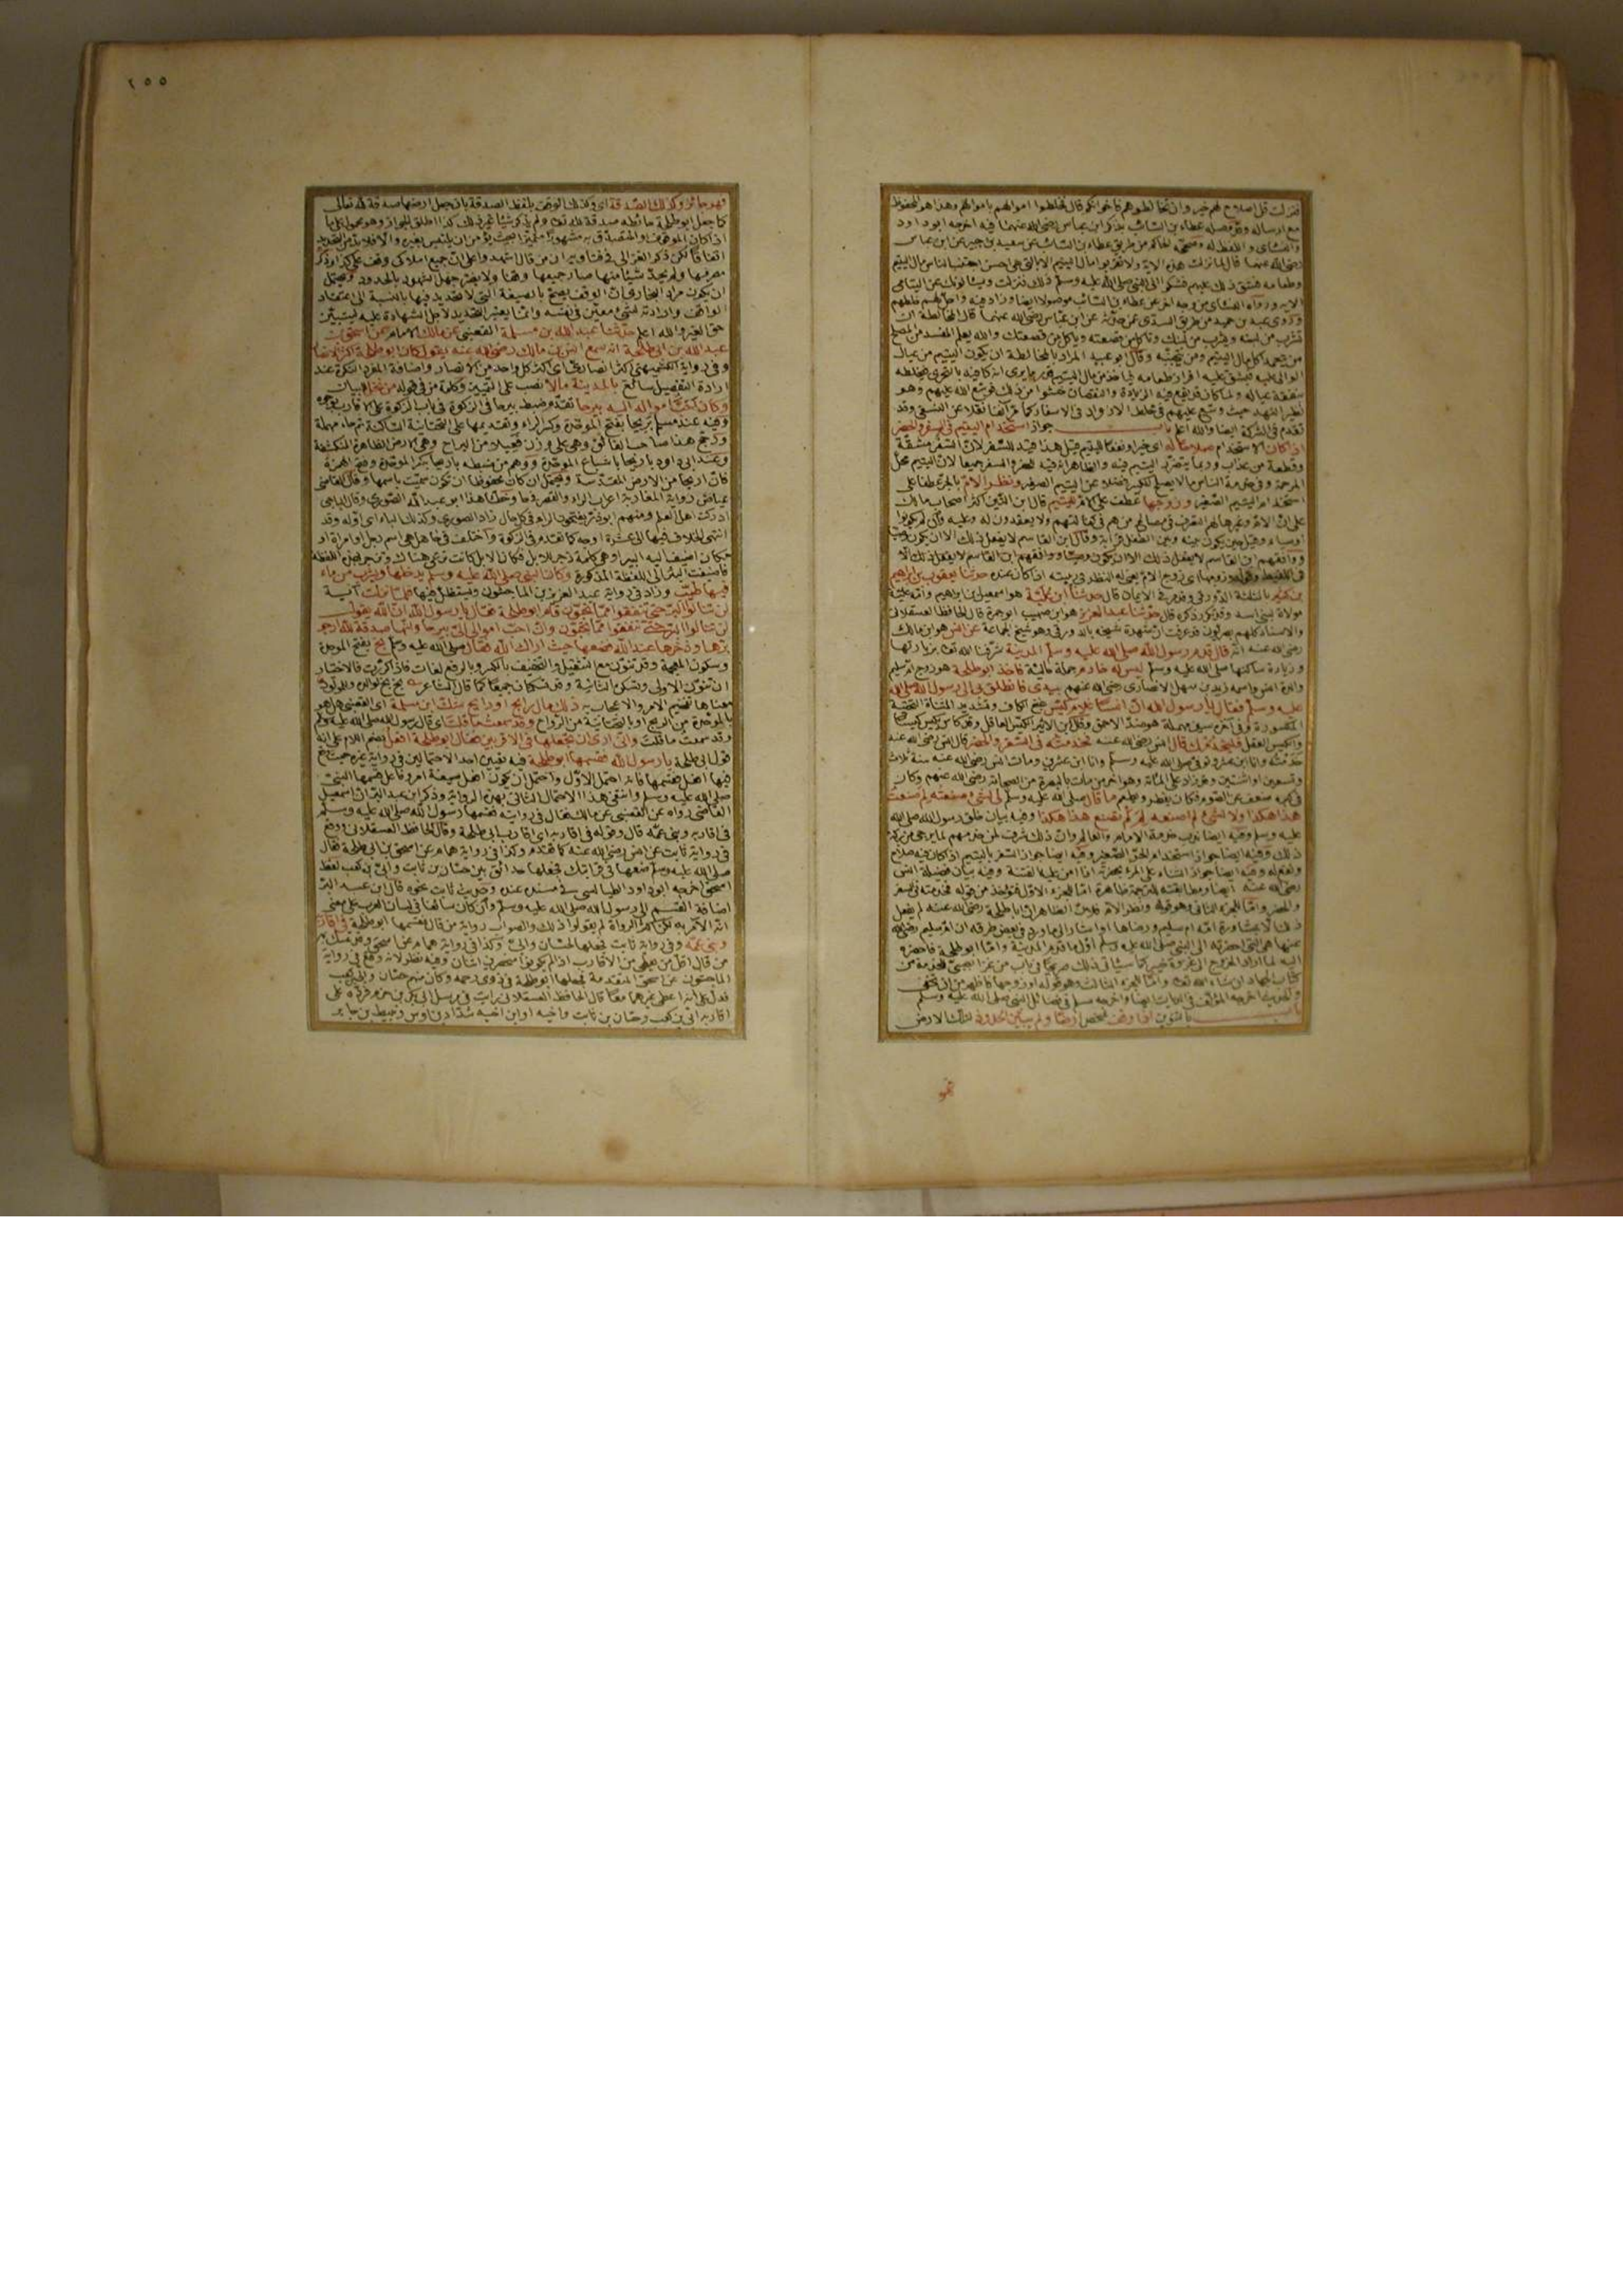 فنزلت قل اصلاح لهم خير وان تخالطوهم فاخوانكم قال فخلطوا اموالهم باموالهم وهذا هو المحفوظ
مع ارساله وقد وصله عطاء بن السائب بذكر ابن عباس رضى الله عنهما فيه اخرجه ابو داود
والنسائى واللفظ له وصححه الحاكم من طريق عطاء بن السائب عن سعيد بن جبير عن ابن عباس
رضى الله عنهما قال لما نزلت هذه الاية ولا تقربوا مال اليتيم الا بالتى هى احسن اجتنب الناس مال اليتيم
وطعامه فشق ذلك عليهم فشكوا الى النبى صلى الله عليه وسلم ذلك فنزلت ويسألونك عن اليتامى
الاية ورواه النسائى من وجه اخر عن عطاء بن السائب موصولا ايضا وزاد فيه واحل لهم خلطهم
وروى عبد بن حميد من طريق السدى عمن حدثه عن ابن عباس رضى الله عنهما قال المخالطة ان
تشرب من لبنه ويشرب من لبنك وتأكل من قصعته ويأكل من قصعتك والله يعلم المفسد من المصلح
من يتعمد اكل مال اليتيم ومن يتجنبه وقال ابو عبيد المراد بالمخالطة ان يكون اليتيم من عيال
الوالى عليه فيشق عليه افراز طعامه فياخذ من مال اليتيم قدر ما يرى انه كافيه بالتحرى فيخلطه
بنفقة عياله ولما كان قد يقع فيه الزيادة والنقصان خشوا من ذلك فوسع الله عليهم وهو
نظير النهد حيث وسع عليهم فى خلط الازواد فى الاسفار كما مر آنفا نقلا عن النسفى وقد
تقدم فى الشركة ايضا والله اعلم باب جواز استخدام اليتيم فى السفر والحضر
اذا كان الاستخدام صلاحا له اى خيرا ونفعا لليتيم قيل هذا قيد للسفر لان السفر مشقة
وقطعة من عذاب وربما يتضرر اليتيم فيه والظاهر انه قيد للحضر والسفر جميعا لان اليتيم محل
المرحمة وفى خدمة الناس ما لا يصلح للكبير فضلا عن اليتيم الصغير ونظر الام بالجر عطفا على
استخدام اليتيم الصغير وزوجها عطف على الام لليتيم قال ابن التين اكثر اصحاب مالك
على ان الام وغيرها لهم التصرف فى مصالح من هم فى كفالتهم ولا يعقدون له وعليه وان لم يكونوا
اوصياء
ووافقهم ابن القاسم
بن كثير بالمثلثة الدورقى وقد مر فى الايمان قال حدثنا ابن علية هو اسمعيل بن ابراهيم وامه علية
مولاة لبنى اسد وقد تكرر ذكره قال حدثنا عبد العزيز هو ابن صهيب ابو حمزة قال الحافظ العسقلانى
والاسناد كلهم بصريون
رضى الله عنه انه قال قدم رسول الله صلى الله عليه وسلم المدينة شرفنا الله تعالى بزيارتها
وزيارة ساكنها صلى الله عليه وسلم ليس له خادم جملة حالية فاخذ ابو طلحة هو زوج ام سليم
والدة انس واسمه زيد بن سهل الانصارى رضى الله عنهم بيدى فانطلق بى الى رسول الله صلى الله
عليه وسلم فقال يا رسول الله ان انسا غلام كيس بفتح الكاف وتشديد المثناة التحتية
المكسورة وفى آخره سين مهملة هو ضد الاحمق وقال ابن الاثير الكيس العاقل وقد كاس يكيس كيسا
والكيس العقل فليخدمك قال انس رضى الله عنه فخدمته فى السفر والحضر قال انس رضى الله عنه
خدمته وانا ابن عشر وتوفى صلى الله عليه وسلم وانا ابن عشرين ومات انس رضى الله عنه سنة ثلاث
وتسعين او اثنتين وقد زاد على المائة وهو آخر من مات بالبصرة من الصحابة رضى الله عنهم وكان
فى كبره ضعف عن الصوم فكان يفطر ويطعم ما قال صلى الله عليه وسلم لى لشئ صنعته لم صنعت
هذا هكذا ولا لشئ لم اصنعه لم لم تصنع هذا هكذا وفيه بيان خلق رسول الله صلى الله
عليه وسلم وفيه ايضا ندب خدمة الامام والعالم وان ذلك شرف لمن خدمهم لما يرجى من بركة
ذلك وفيه ايضا جواز استخدام الحر الصغير وفيه ايضا جواز السفر باليتيم اذا كان فيه صلاح
ونفع له وفيه ايضا جواز الثناء على المرء بحضرته اذا امن عليه الفتنة وفيه بيان فضيلة انس
رضى الله عنه ايضا ومطابقته للترجمة ظاهرة اما للجزء الاول فتؤخذ من قوله فخدمته فى السفر
والحضر واما للجزء الثانى وهو قوله ونظر الام فلان الظاهر ان ابا طلحة رضى الله عنه لم يفعل
ذلك الا بمشاورة امه ام سليم ورضاها او اشار الى ما ورد فى بعض طرقه ان ام سليم رضى الله
عنها هى التى احضرته الى النبى صلى الله عليه وسلم اول ما قدم المدينة واما ابو طلحة فاحضره
اليه لما اراد الخروج الى غزوة خيبر كما سيأتى ذلك صريحا فى باب من غزا بصبى للخدمة من
كتاب الجهاد ان شاء الله تعالى واما للجزء الثالث وهو قوله او زوجها
والحديث اخرجه المؤلف فى الديات ايضا واخرجه مسلم فى فضائل النبى صلى الله عليه وسلم
باب بالتنوين اذا وقف شخص ارضا ولم يبين الحدود لتلك الارض
فهو
٢٥٥
فهو جائز وكذلك الصدقة اى وكذلك الوقف بلفظ الصدقة بان جعل ارضها صدقة لله تعالى
كما جعل ابو طلحة حائطه صدقة لله تعالى ولم يذكر شيئا غير ذلك كذا اطلق الجواز وهو محمول على ما
اذا كان الموقوف او المتصدق به مشهورا متميزا بحيث يؤمن ان يلتبس بغيره والا فلا بد من التحديد
اتفاقا لكن ذكر الغزالى فى فتاويه ان من قال اشهدوا على ان جميع املاكى وقف على كذا وذكر
مصرفها ولم يحدد شيئا منها صار جميعها وقفا ولا يضر جهل الشهود بالحدود ويحتمل
ان يكون مراد البخارى ان الوقف يصح بالصيغة التى لا تحديد فيها بالنسبة الى اعتقاد
الواقف وارادته لشئ معين فى نفسه وانما يعتبر التحديد لاجل الاشهاد عليه ليتبين
حق الغير والله اعلم حدثنا عبد الله بن مسلمة القعنبى عن مالك الامام عن اسحق بن
عبد الله بن ابى طلحة انه سمع انس بن مالك رضى الله عنه يقول كان ابو طلحة اكثر الانصار
وفى رواية الكشميهنى اكثر انصارى اى اكثر كل واحد من الانصار واضافة المفرد النكرة عند
ارادة التفضيل سائغ بالمدينة مالا نصب على التمييز وكلمة من فى قوله من نخل للبيان
وكان احب امواله اليه بيرحا تقدم ضبط بيرحا فى الزكوة فى باب الزكوة على الاقارب
وفيه عند مسلم بريحا بفتح الموحدة وكسر الراء وتقديمها على التحتانية الساكنة ثم حاء مهملة
ورجح هذا صاحب الفائق وهى على وزن فعيلا من البراح وهى الارض الظاهرة المنكشفة
وعند ابى داود باريحا باشباع الموحدة ووهم من ضبطه باريحا بكسر الموحدة وفتح الهمزة
فان اريحا من الارض المقدسة ويحتمل ان كان محفوظا ان تكون سميت باسمها وقال القاضى
عياض رواية المغاربة اعراب الراء والقصر فى حا وخطأ هذا ابو عبد الله الصورى وقال الباجى
ادركت اهل العلم ومنهم ابو ذر يفتحون الراء فى كل حال زاد الصورى وكذلك الباء اى اوله وقد
انتهى الخلاف فيها الى عشرة اوجه كما تقدم فى الزكوة واختلف فى حا هل هى اسم رجل او امرأة او
مكان اضيف اليه البير او هى كلمة زجر للابل فكان الابل كانت ترعى هناك وتزجر بهذه اللفظة
فاضيفت البئر الى اللفظة المذكورة وكان النبى صلى الله عليه وسلم يدخلها ويشرب من ماء
فيها طيب وزاد فى رواية عبد العزيز بن الماجشون ويستظل فيها فلما نزلت آية
لن تنالوا البر حتى تنفقوا مما تحبون قام ابو طلحة فقال يا رسول الله ان الله يقول
لن تنالوا البر حتى تنفقوا مما تحبون وان احب اموالى الى بيرحا وانها صدقة لله ارجو
برها وذخرها عند الله فضعها حيث اراك الله فقال صلى الله عليه وسلم بخ بفتح الموحدة
وسكون المعجمة وقد تنون مع التثقيل والتخفيف بالكسر وبالرفع لغات فاذا كررت فالاختيار
ان تنون الاولى وتسكن الثانية وقد تسكنان جميعا كما قال الشاعر بخ بخ لوالده وللمولود
معناها تفخيم الامر والاعجاب به ذلك مال رابح او رايح شك ابن مسلمة اى القعنبى هل هو
بالموحدة من الربح او بالتحتانية من الرواح وقد سمعت ما قلت اى قال رسول الله صلى الله عليه وسلم
وقد سمعت ما قلت وانى ارى ان تجعلها فى الاقربين فقال ابو طلحة افعل بضم اللام على انه
قول ابى طلحة يا رسول الله فقسمها ابو طلحة فيه تعيين احد الاحتمالين فى رواية غيره حيث وقع
فيها افعل فقسمها فانه احتمل الاول واحتمل ان يكون افعل صيغة امر وفاعل قسمها النبى
صلى الله عليه وسلم وانتفى هذا الاحتمال الثانى بهذه الرواية وذكر ابن عبد البر ان اسمعيل
القاضى رواه عن القعنبى عن مالك فقال فى روايته فقسمها رسول الله صلى الله عليه وسلم
فى اقاربه وبنى عمه قال وقوله فى اقاربه اى اقارب ابى طلحة وقال الحافظ العسقلانى ووقع
فى رواية ثابت عن انس رضى الله عنه كما تقدم وكذا فى رواية همام عن اسحق بن ابى طلحة فقال
صلى الله عليه وسلم ضعها فى قرابتك فجعلها حدائق بين حسان بن ثابت وابى بن كعب لفظ
اسحق اخرجه ابو داود الطيالسى فى مسنده عنه وحديث ثابت نحوه قال ابن عبد البر
اضافة القسم الى رسول الله صلى الله عليه وسلم وان كان سائغا فى لسان العرب على معنى
انه الآمر به لكن اكثر الرواة لم يقولوا ذلك والصواب رواية من قال فقسمها ابو طلحة فى اقاربه
وبنى عمه وفى رواية ثابت فجعلها لحسان وابى وكذا فى رواية همام عن اسحق وقد تمسك به
من قال اقل من يعطى من الاقارب اذا لم يكونوا منحصرين اثنان وفيه نظر لانه وقع فى رواية
الماجشون عن اسحق المتقدمة فجعلها ابو طلحة فى ذوى رحمه وكان منهم حسان وابى بن كعب
فدل على انه اعطى غيرهما معهما قال الحافظ العسقلانى رايت فى مرسل ابى بكر بن حزم فرده على
اقاربه ابى بن كعب وحسان بن ثابت واخيه او ابن اخيه شداد بن اوس ونبيط بن جابر